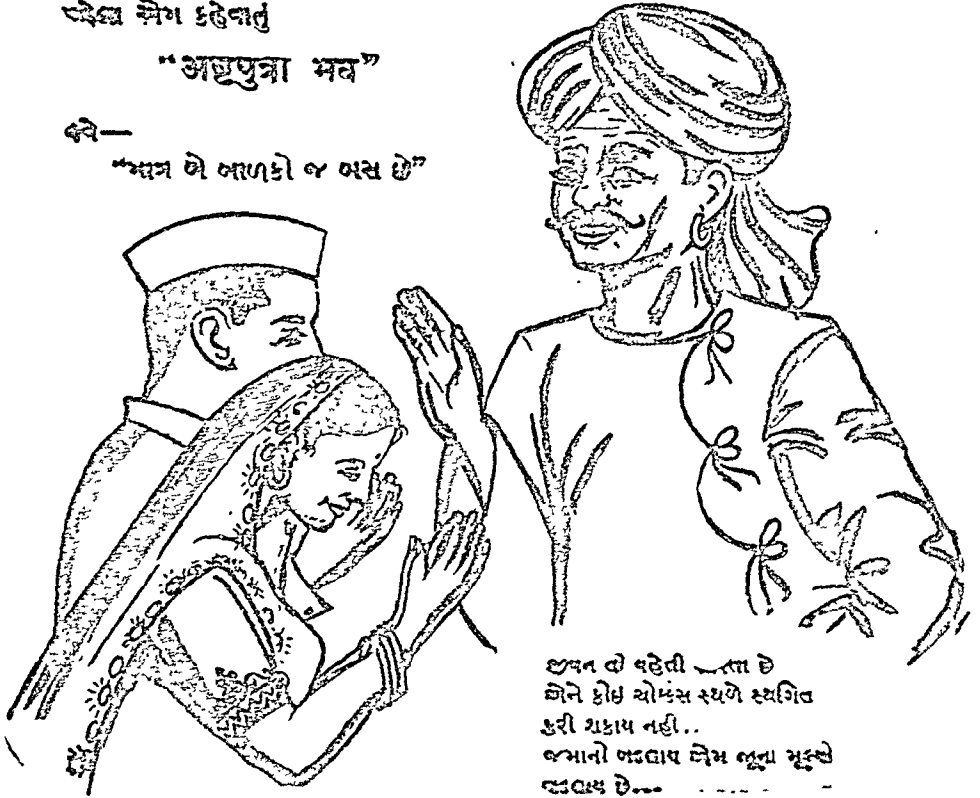 પહેલા એમ કહેવાતું
"अष्टपुत्रा भव"
હવે—
"માત્ર બે બાળકો જ બસ છે"
જીવન તો વહેતી છે
એને કોઈ ચોક્કસ સ્થળે સ્થગિત
કરી શકાય નહી..
જમાનો બદલાય એમ જૂના મૂલ્યો
બદલાય છે...